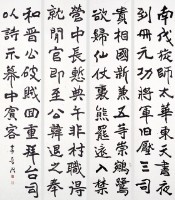 南伐旋師太華東天書夜
到冊元功將軍舊壓三司
貴相國新兼五等崇鵷鷺
欲歸仙仗裏熊羆還入禁
營中長慚典午非材職得
就閒官即至公韓退之奉
和晉公破賊回重拜台司
以詩示幕中賓客